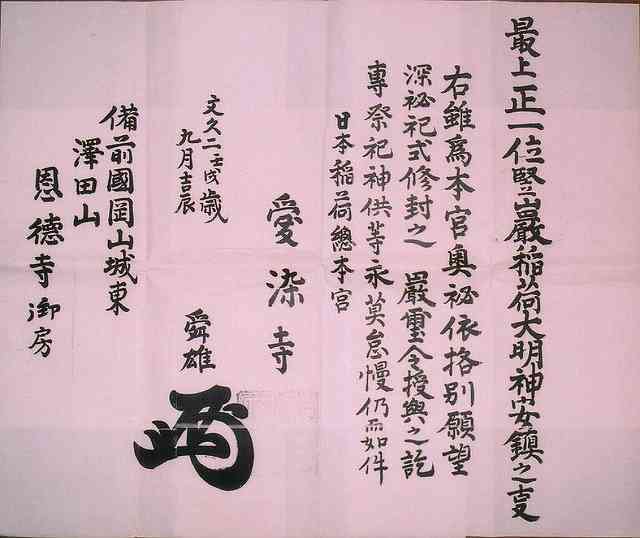 最上正一位堅嵓巖稲荷大明神安鎮之事
右雖爲本宮奥祕依格別願望
深祕祀式修封之 嚴璽令授與之訖
專祭祀神供等永莫怠慢仍而如件
日本稲荷總本宮
愛染寺
舜雄
文久二壬戌歳
九月吉辰
備前國岡山城東
澤田山
恩德寺御房